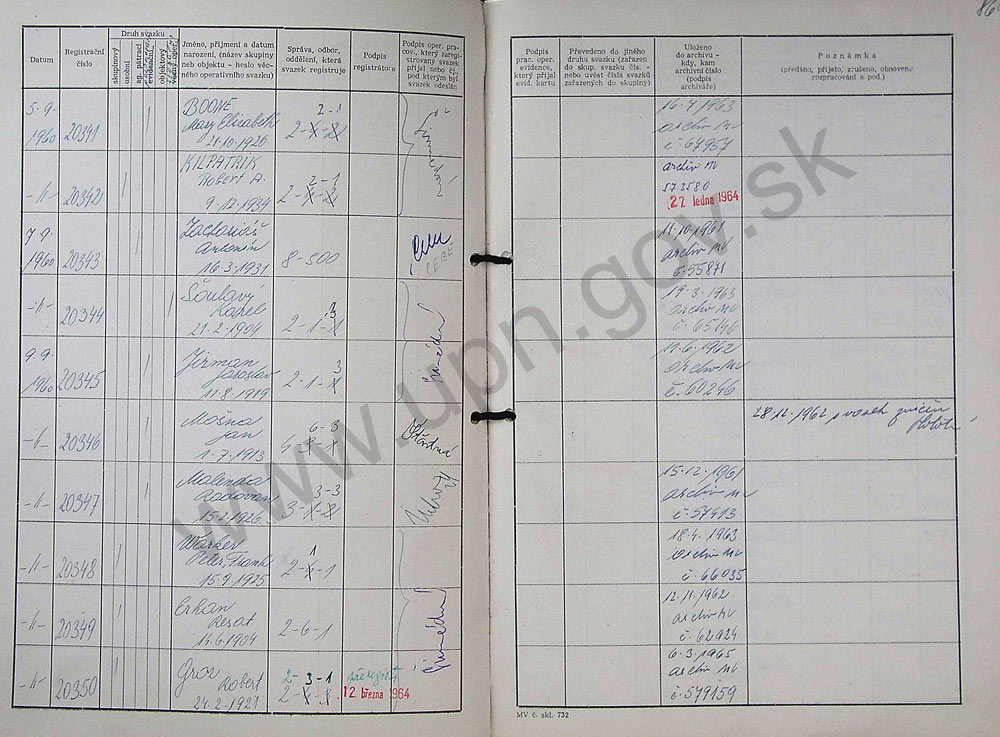 86
Datum
Registrační
číslo
Druh svazku
skupinový
osobní
ag. pátrací
evidenční
objektový
Jméno, příjmení a datum
narození, (název skupiny
neb objektu - heslo věc-
ného operativního svazku)
Správa, odbor,
oddělení, která
svazek registruje
Podpis
registrátora
Podpis oper. pra-
cov., který zareg-
istrovaný svazek
přijal nebo čj.,
pod kterým byl
svazek odeslán
Podpis
prac. oper.
evidence,
který přijal
evid. kartu
Převedeno do jiného
druhu svazku (zařazen
do skup. svazku čís. -
nebo uvést čísla svazků
zařazených do skupiny)
Uloženo
do archivu -
kdy, kam
archivní číslo
(podpis
archiváře)
Poznámka
(předáno, přijato, zrušeno, obnoveno
rozpracování a pod.)
5.9.
1960
20341
BOONE
Mary Elizabeth
21.10.1920
2-1
2-X-2
16.4.1963
archiv MV
č. 67957
-11-
20342
KILPATRIK
Robert A.
9.12.1934
2-1
2-X-2
archiv MV
573580
22. ledna 1964
7.9.
1960
20343
Antonín
16.3.1931
8-500
11.10.1961
archiv MV
č. 55871
-11-
20344
Šoulavý
Karel
21.2.1904
3
2-1-X
19.3.1963
archiv MV
č. 65146
9.9.
1960
20345
Jirman
Jaroslav
11.8.1919
3
2-1-X
11.6.1962
archiv MV
č. 60246
20346
Mošna
Jan
1.7.1913
6-3
28.12.1962 svazek zničen
-11-
20347
Malenda
Radovan
15.2.1926
3-3
3-1-2
15.12.1961
archiv MV
č. 57413
-11-
20348
Warker
Peter Frank
15.9.1925
1
2-X-1
18.4.1963
archiv MV
č. 66035
-11-
20349
Erhan
Resat
14.6.1904
2-6-1
12.11.1962
archiv MV
č. 62924
-11-
20350
Robert
24.2.1921
2-3-1
přeregistr.
12. března 1964
6.3.1965
archiv MV
č. 579159
MV č. skl. 732
www.upn.gov.sk